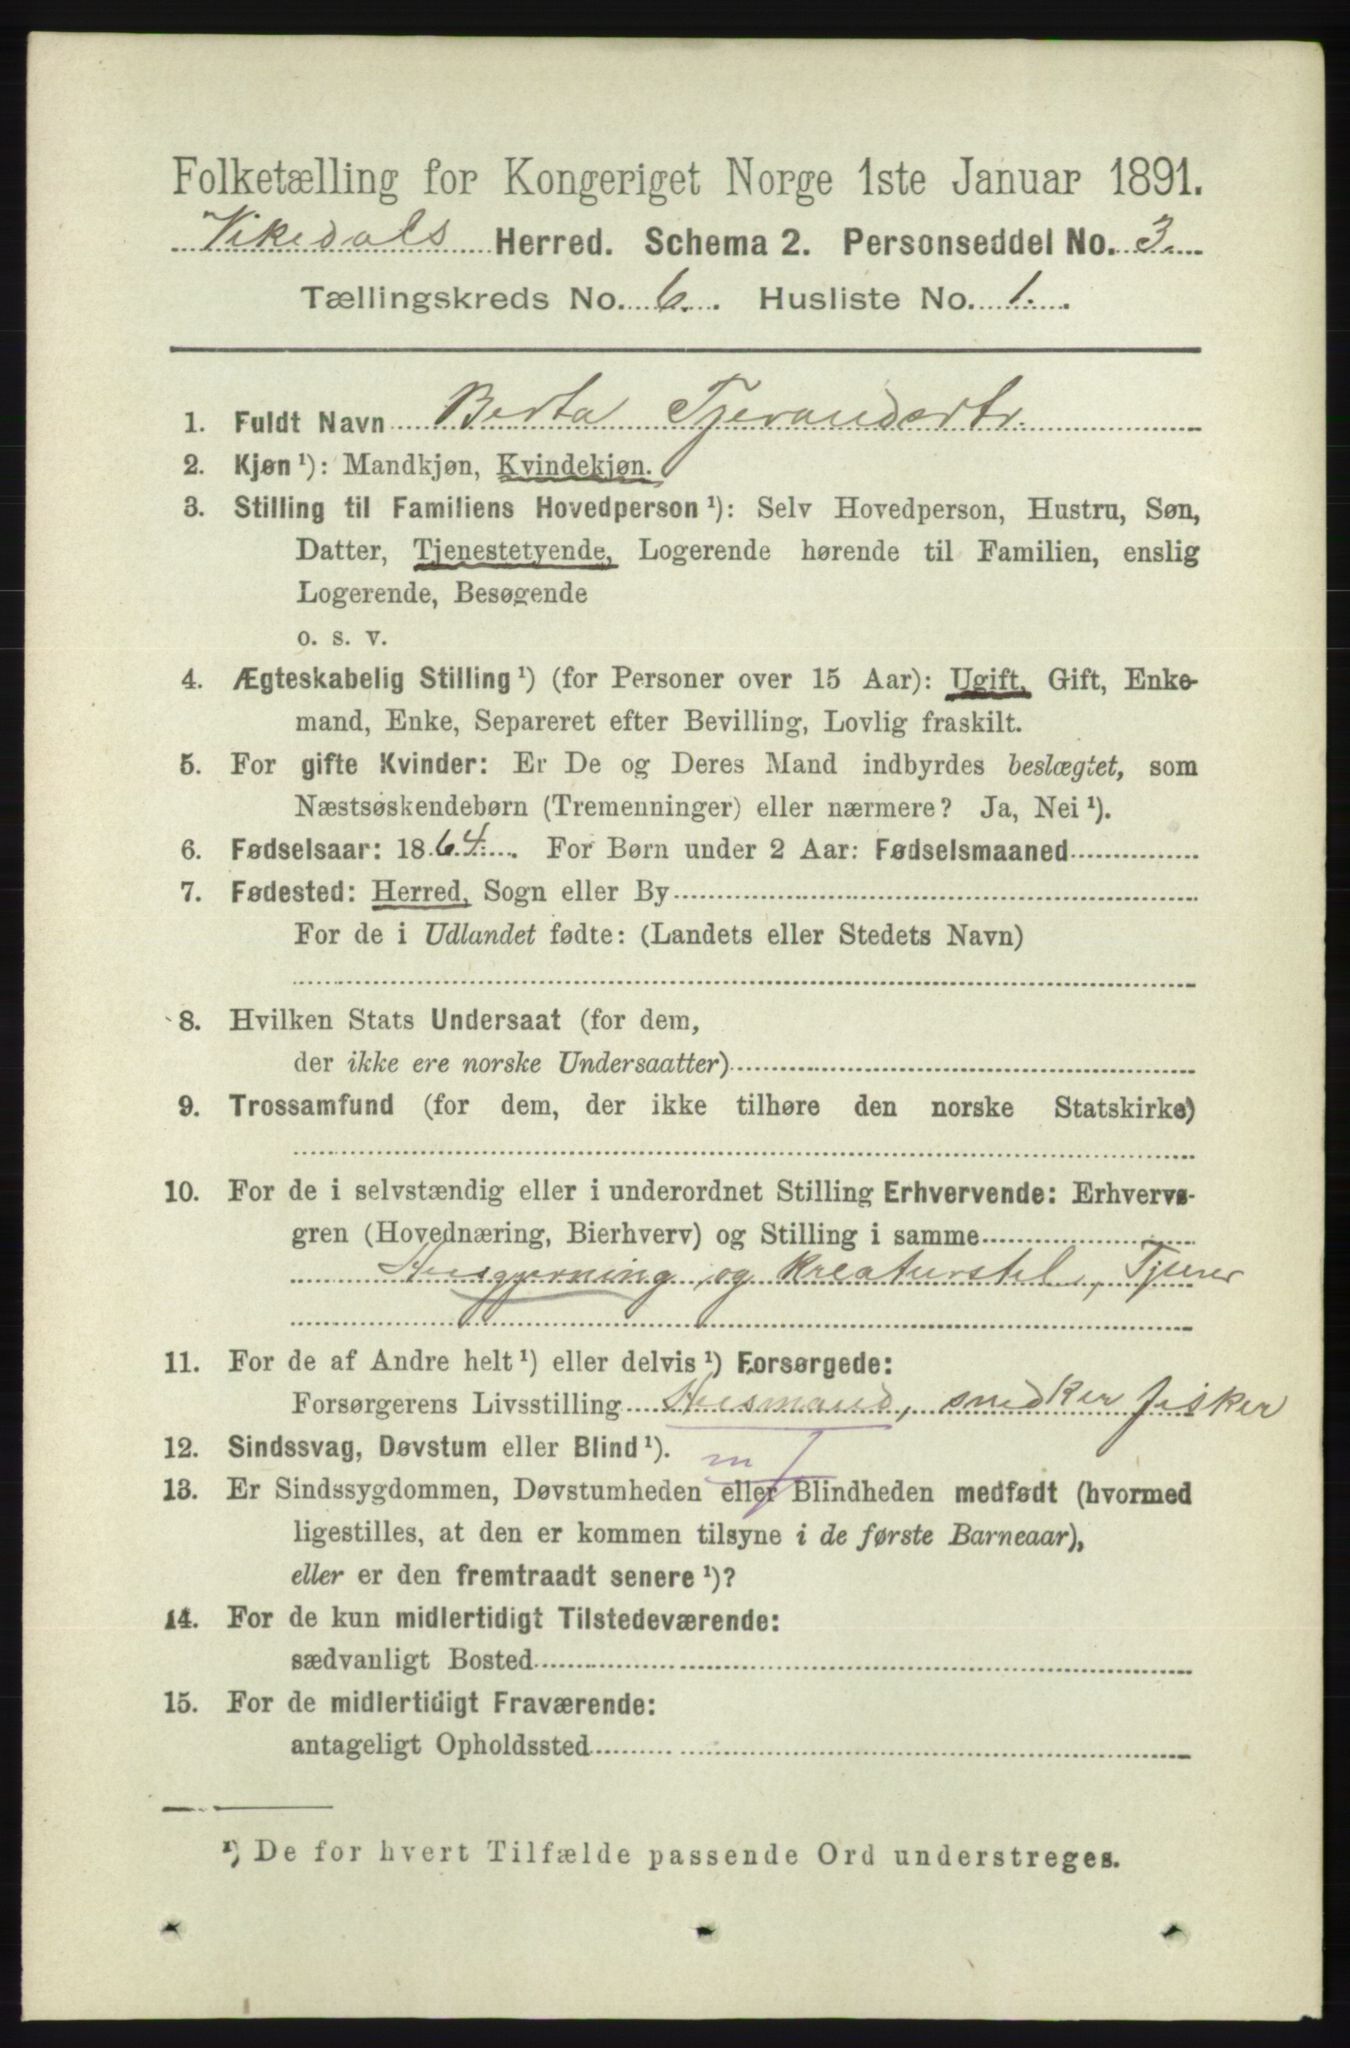 Folketælling for Kongeriget Norge 1ste Januar 1891.
Vikedals Herred. Schema 2. Personseddel No. 3.
Tællingskreds No. 6. Husliste No. 1.
1. Fuldt Navn Berta Tjerandsdtr.
2. Kjøn ¹): Mandkjøn, Kvindekjøn.
3. Stilling til Familiens Hovedperson ¹): Selv Hovedperson, Hustru, Søn,
Datter, Tjenestetyende, Logerende hørende til Familien, enslig
Logerende, Besøgende
o. s. v.
4. Ægteskabelig Stilling ¹) (for Personer over 15 Aar): Ugift, Gift, Enke-
mand, Enke, Separeret efter Bevilling, Lovlig fraskilt.
5. For gifte Kvinder: Er De og Deres Mand indbyrdes beslægtet, som
Næstsøskendebørn (Tremenninger) eller nærmere? Ja, Nei ¹).
6. Fødselsaar: 1864. For Børn under 2 Aar: Fødselsmaaned
7. Fødested: Herred, Sogn eller By
For de i Udlandet fødte: (Landets eller Stedets Navn)
8. Hvilken Stats Undersaat (for dem,
der ikke ere norske Undersaatter)
9. Trossamfund (for dem, der ikke tilhøre den norske Statskirke)
10. For de i selvstændig eller i underordnet Stilling Erhvervende: Erhvervs-
gren (Hovednæring, Bierhverv) og Stilling i samme
Husgjerning, og kreaturstel, Tjener
11. For de af Andre helt ¹) eller delvis ¹) Forsørgede:
Forsørgerens Livsstilling Husmand, snedker fisker
12. Sindssvag, Døvstum eller Blind ¹).
13. Er Sindssygdommen, Døvstumheden eller Blindheden medfødt (hvormed
ligestilles, at den er kommen tilsyne i de første Barneaar),
eller er den fremtraadt senere ¹)?
14. For de kun midlertidigt Tilstedeværende:
sædvanligt Bosted
15. For de midlertidigt Fraværende:
antageligt Opholdssted
¹) De for hvert Tilfælde passende Ord understreges.